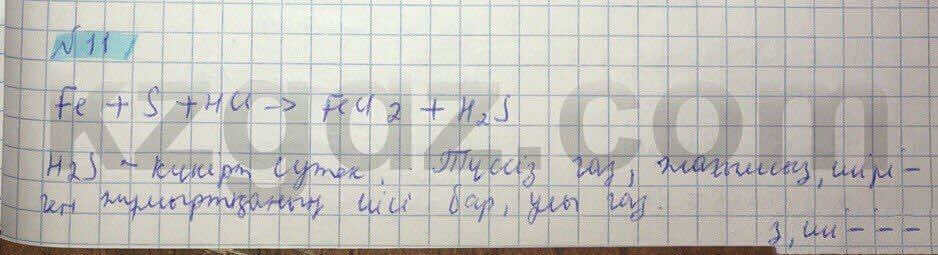 № 11
Fe + S + HCl → FeCl2 + H2S
H2S - күкірт сутек. Түссіз газ, жағымсыз, шірі-
ген жұмыртқаның иісі бар, улы газ.
kzgdz.com